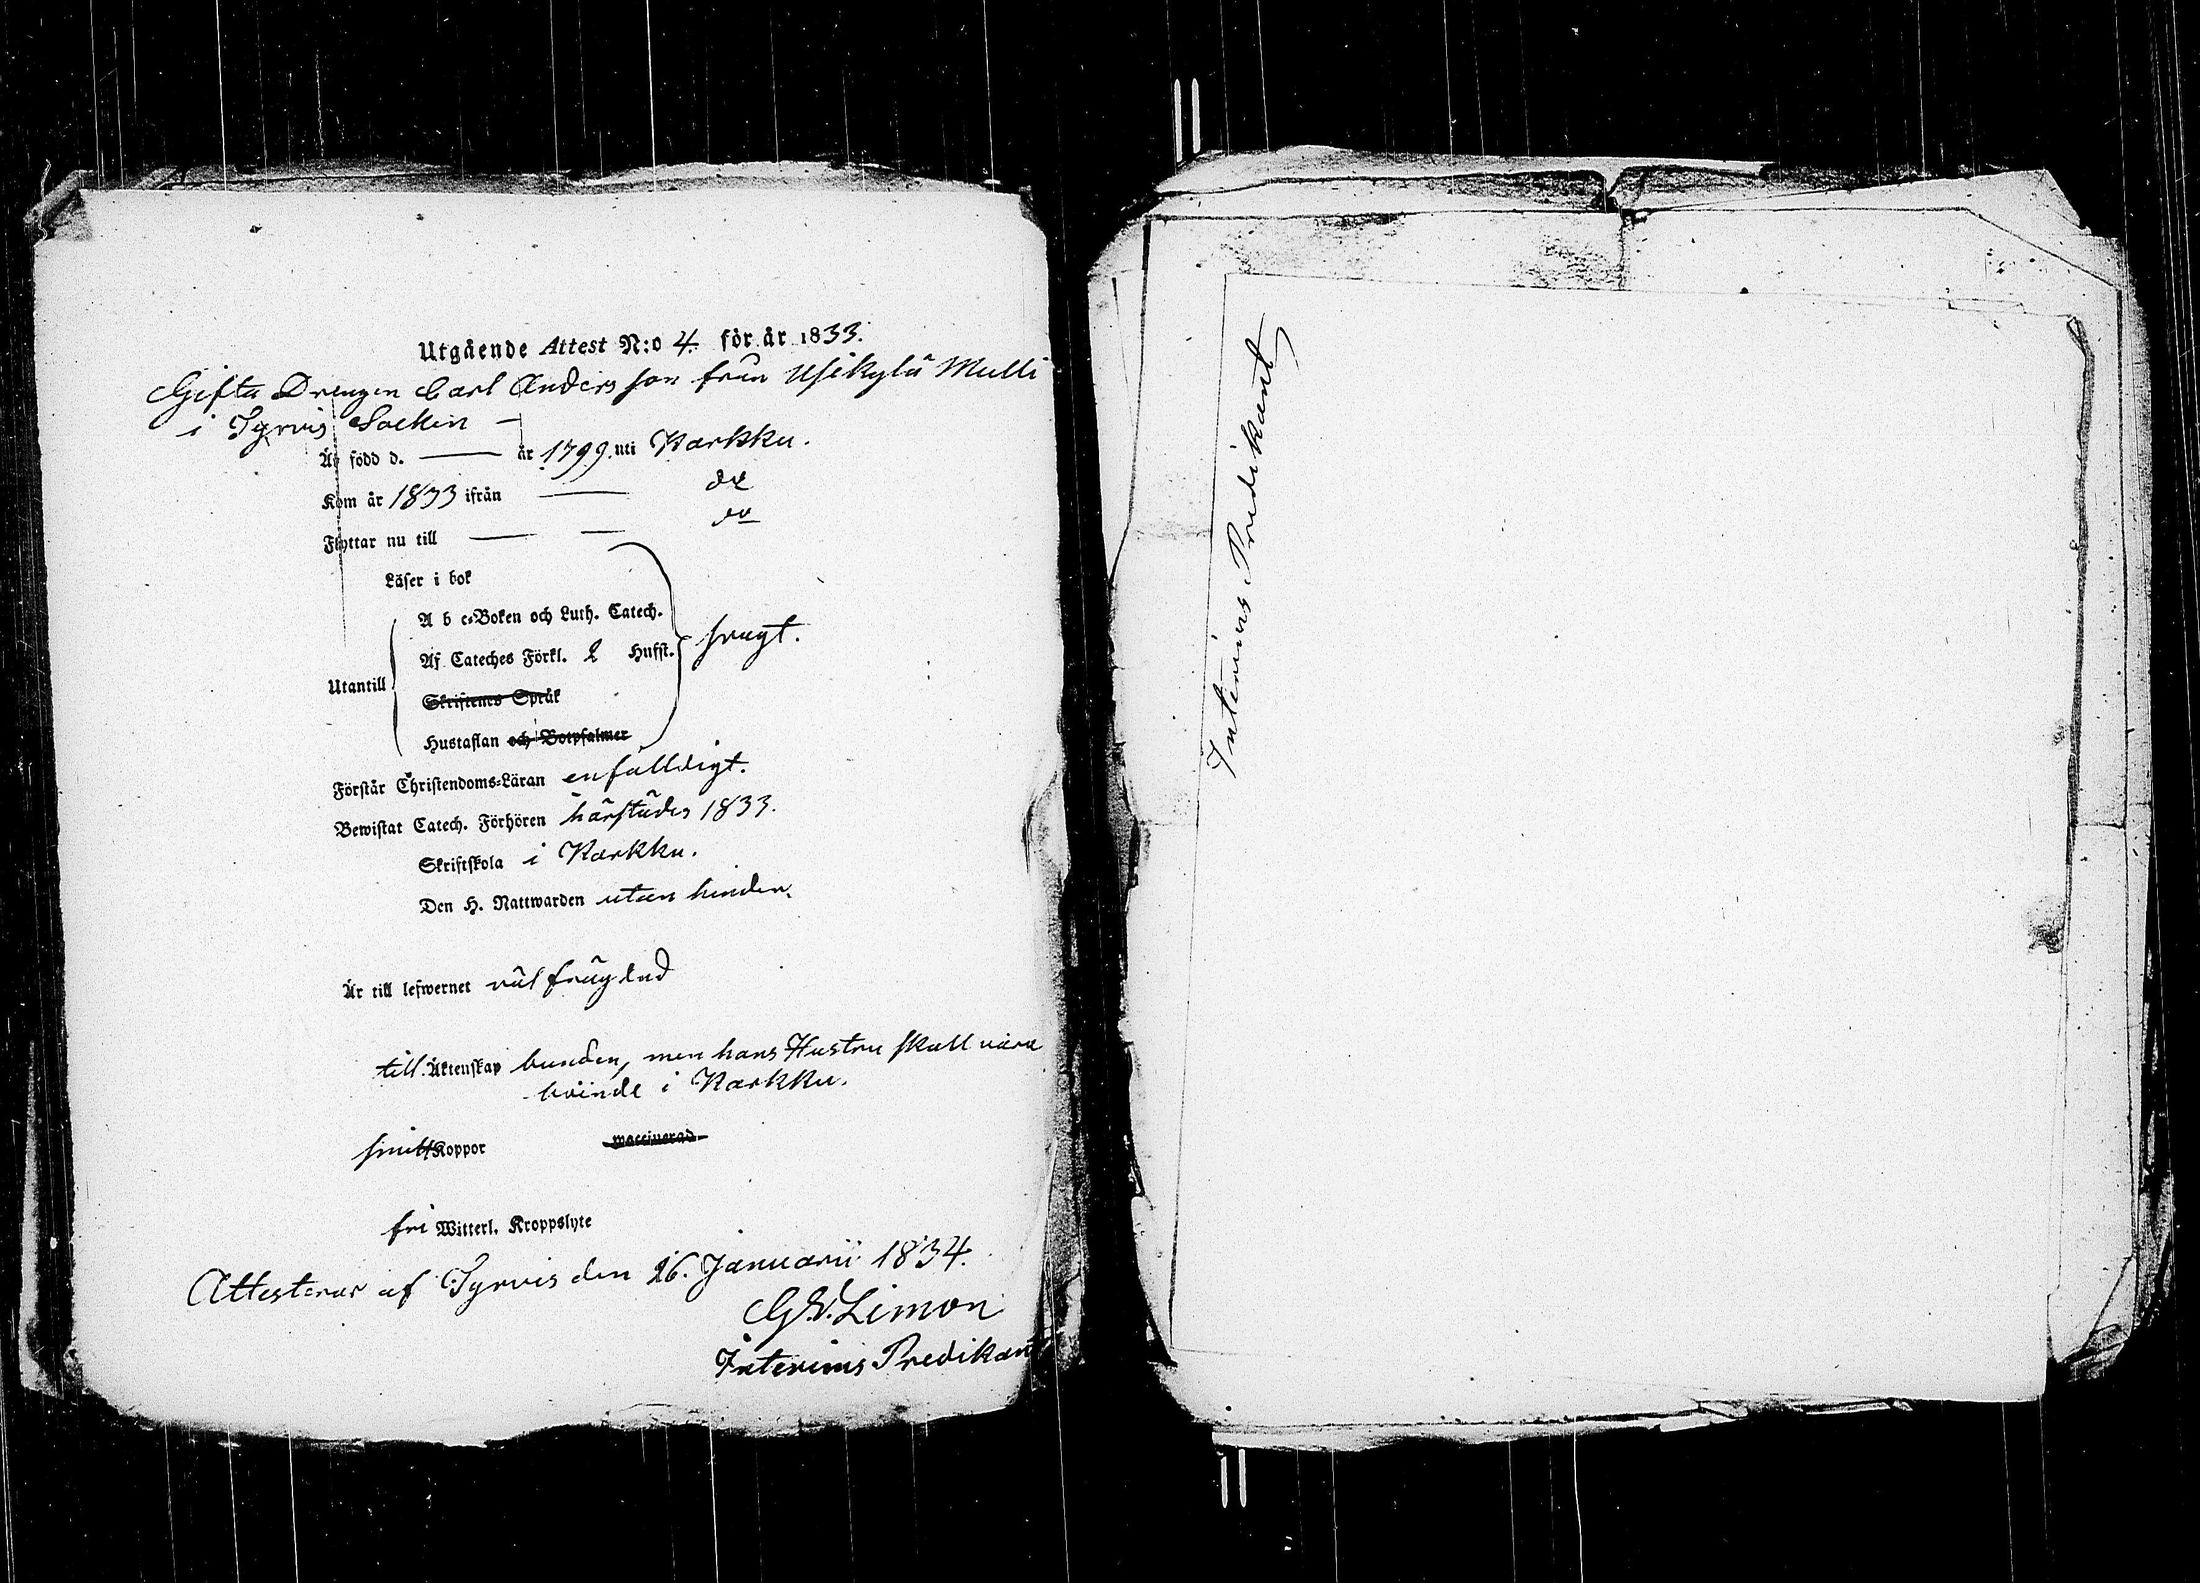 Utgående Attest N:o 4. för år 1833.
Gifta Drengen Carl Andersson från Usikylä Mulli
i Tyrvis Socken —
Är född d. — år 1799. uti Karkku.
Kom år 1833 ifrån — do
Flyttar nu till — — do
Läser i bok
A b c-Boken och Luth. Catech.
Af Cateches Förkl. 2 Hufst. svagt.
Utantill
Skriftenes Språk
Hustaflan och Botpsalmer
Förstår Christendoms-Läran enfalldigt.
Bewistat Catech. Förhören härstädes 1833.
Skriftskola i Karkku.
Den H. Nattwarden utan hinder.
Är till lefwernet väl frägdad
till Äktenskap bunden, men hans Hustru skall vara
boende i Karkku.
haft Koppor waccinerad
fri Witterl. Kroppslyte
Attesterar af Tyrvis den 26. Januarii 1834.
G.W. Limon
Interims Predikant
Interims Predikant